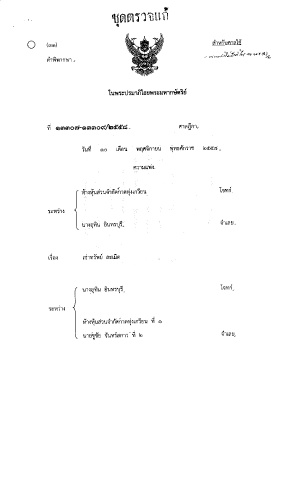 ชุดตรวจแก้
(๓๑)
สำหรับศาลใช้
คำพิพากษา
ในพระปรมาภิไธยพระมหากษัตริย์
ที่ ๑๓๓๐๗-๑๓๓๐๙/๒๕๕๘
ศาลฎีกา
วันที่ ๑๐ เดือน พฤศจิกายน พุทธศักราช ๒๕๕๘
ความแพ่ง
ห้างหุ้นส่วนจำกัดกวดทุ่งเกรียน โจทก์
ระหว่าง
นางอุทิน อินทรบุรี จำเลย
เรื่อง เช่าทรัพย์ ละเมิด
นางอุทิน อินทรบุรี โจทก์
ระหว่าง
ห้างหุ้นส่วนจำกัดกวดทุ่งเกรียน ที่ ๑
ที่ ๒ จำเลย